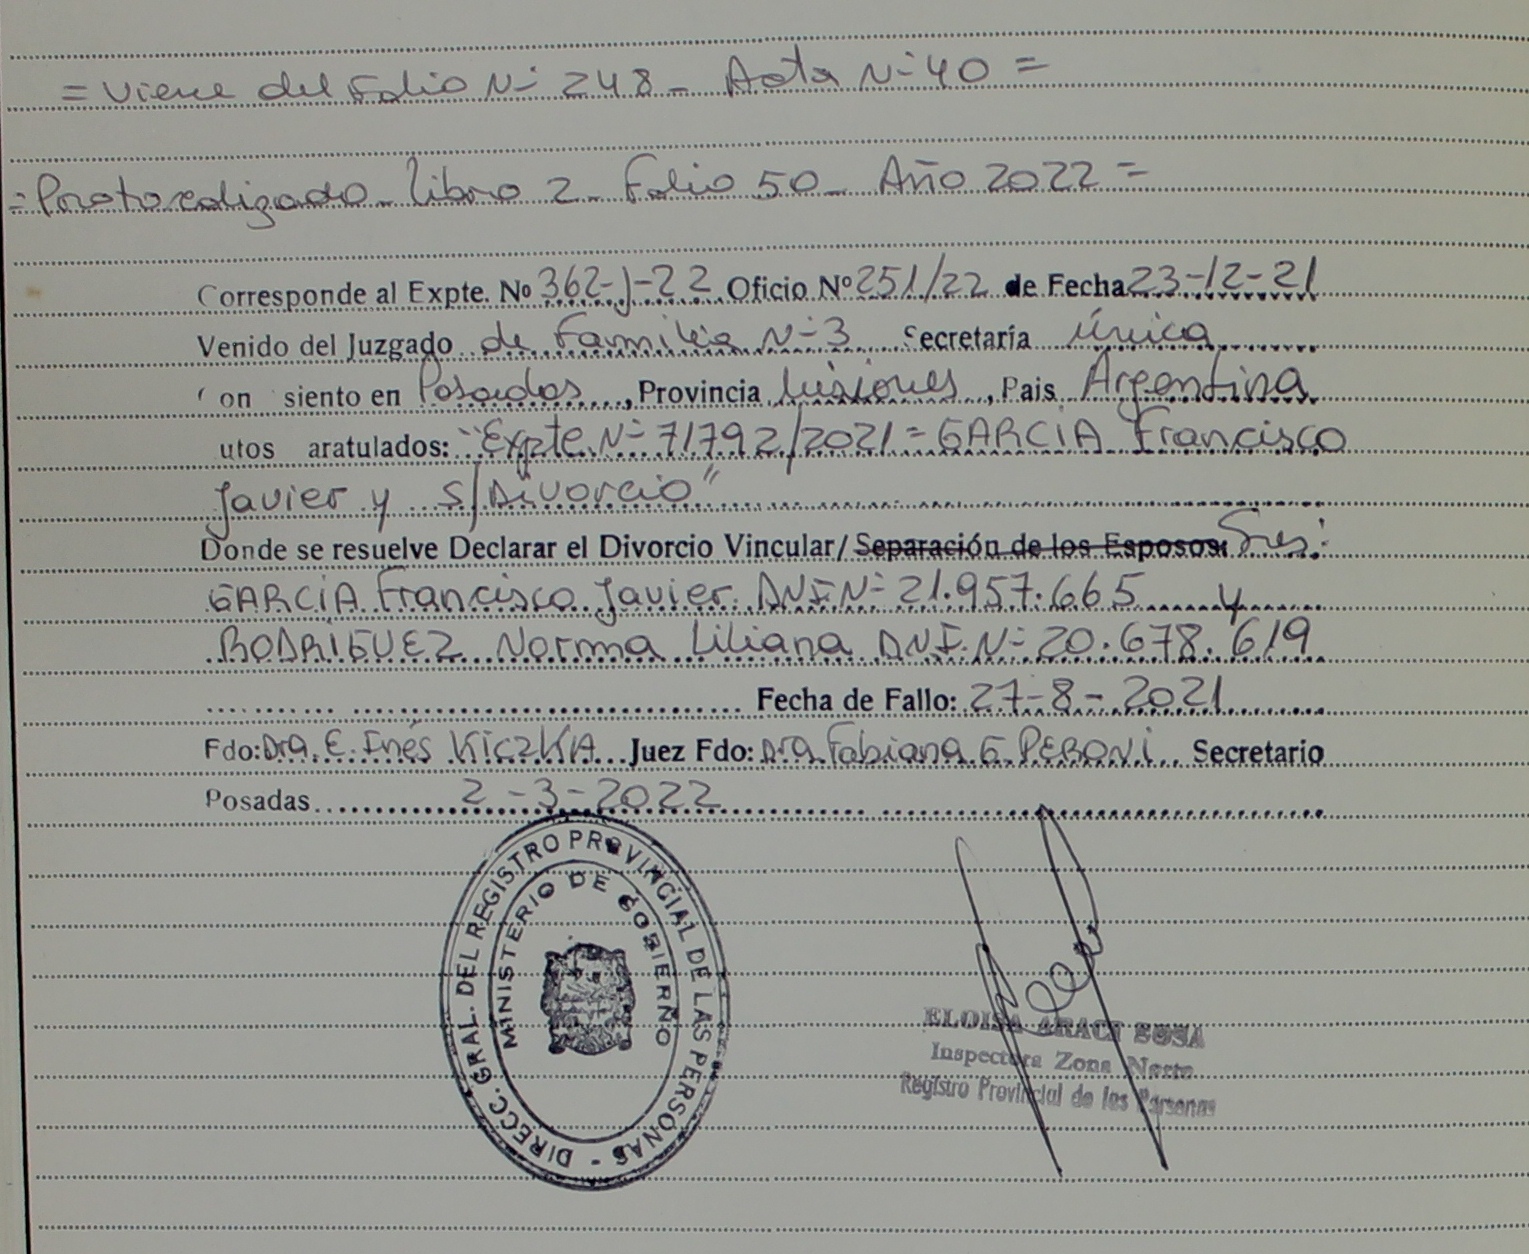 = Viene del Folio N° 248 - Acta N° 40 =
= Protocolizado - Libro 2 - Folio 50 - Año 2022 =
Corresponde al Expte. Nº 362-J-22 Oficio Nº 251/22 de Fecha 23-12-21
Venido del Juzgado de Familia N° 3 Secretaría Única
on siento en Posadas, Provincia Misiones, Pais Argentina
utos aratulados: "Expte N° 71792/2021 = GARCIA Francisco
Javier y S/Divorcio"
Donde se resuelve Declarar el Divorcio Vincular/ Separación de los Esposos: Sres:
GARCIA Francisco Javier DNI N° 21.957.665 y
RODRIGUEZ Norma Liliana DNI N° 20.678.619
Fecha de Fallo: 27-8-2021
Fdo: Dra. E. Inés KICZKA Juez Fdo: Dra Fabiana G. PERONI Secretario
Posadas 2-3-2022
DIRECC. GRAL. DEL REGISTRO PROVINCIAL DE LAS PERSONAS -
MINISTERIO DE GOBIERNO
ELOISA ARACI SOSA
Inspectora Zona Norte
Registro Provincial de las Personas